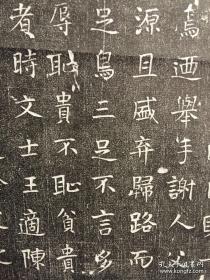 焉迺舉手謝人
源且盛弃歸路而
鳥三足不言多
辱恥貴不恥貧貴
者時文士王適陳